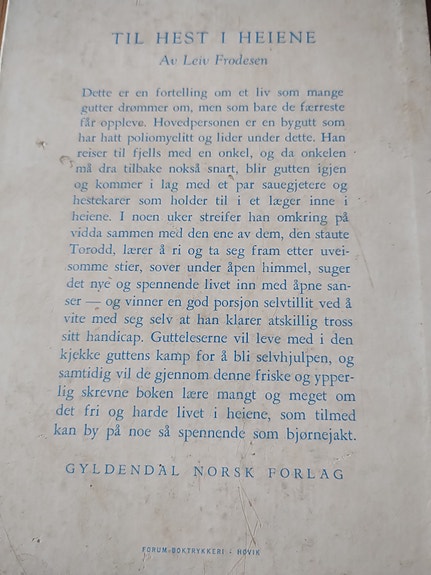 TIL HEST I HEIENE
Av Leiv Frodesen
Dette er en fortelling om et liv som mange
gutter drømmer om, men som bare de færreste
får oppleve. Hovedpersonen er en bygutt som
har hatt poliomyelitt og lider under dette. Han
reiser til fjells med en onkel, og da onkelen
må dra tilbake nokså snart, blir gutten igjen
og kommer i lag med et par sauegjetere og
hestekarer som holder til i et læger inne i
heiene. I noen uker streifer han omkring på
vidda sammen med den ene av dem, den staute
Torodd, lærer å ri og ta seg fram etter uvei-
somme stier, sover under åpen himmel, suger
det nye og spennende livet inn med åpne san-
ser — og vinner en god porsjon selvtillit ved å
vite med seg selv at han klarer atskillig tross
sitt handicap. Gutteleserne vil leve med i den
kjekke guttens kamp for å bli selvhjulpen, og
samtidig vil de gjennom denne friske og ypper-
lig skrevne boken lære mangt og meget om
det fri og harde livet i heiene, som tilmed
kan by på noe så spennende som bjørnejakt.
GYLDENDAL NORSK FORLAG
FORUM-BOKTRYKKERI - HØVIK